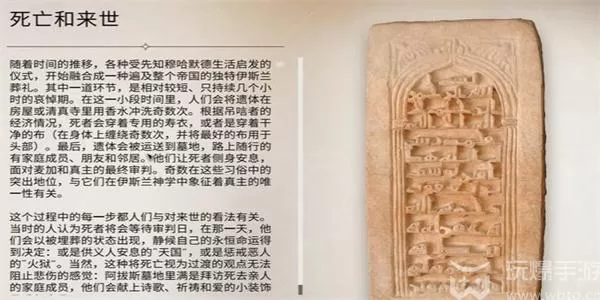 死亡和来世
随着时间的推移，各种受先知穆哈默德生活启发的
仪式，开始融合成一种遍及整个帝国的独特伊斯兰
葬礼。其中一道环节，是相对较短、只持续几个小
时的哀悼期。在这一小段时间里，人们会将遗体在
房屋或清真寺里用香水冲洗奇数次。根据吊唁者的
经济情况，死者会穿着专用的寿衣，或者是穿着干
净的布（在身体上缠绕奇数次，并将最好的布用于
头部）。最后，遗体会被运送到墓地，路上随行的
有家庭成员、朋友和邻居。他们让死者侧身安息，
面对麦加和真主的最终审判。奇数在这些习俗中的
突出地位，与它们在伊斯兰神学中象征着真主的唯
一性有关。
这个过程中的每一步都人们与对来世的看法有关。
当时的人认为死者将会等待审判日，在那一天，他
们会以被埋葬的状态出现，静候自己的永恒命运得
到决定：或是供义人安息的“天国”，或是惩戒恶人
的“火狱”。当然，这种将死亡视为过渡的观点无法
阻止悲伤的感觉：阿拔斯墓地里满是拜访死去亲人
的家庭成员，他们会献上诗歌、祈祷和爱的小装饰
玩爆手游